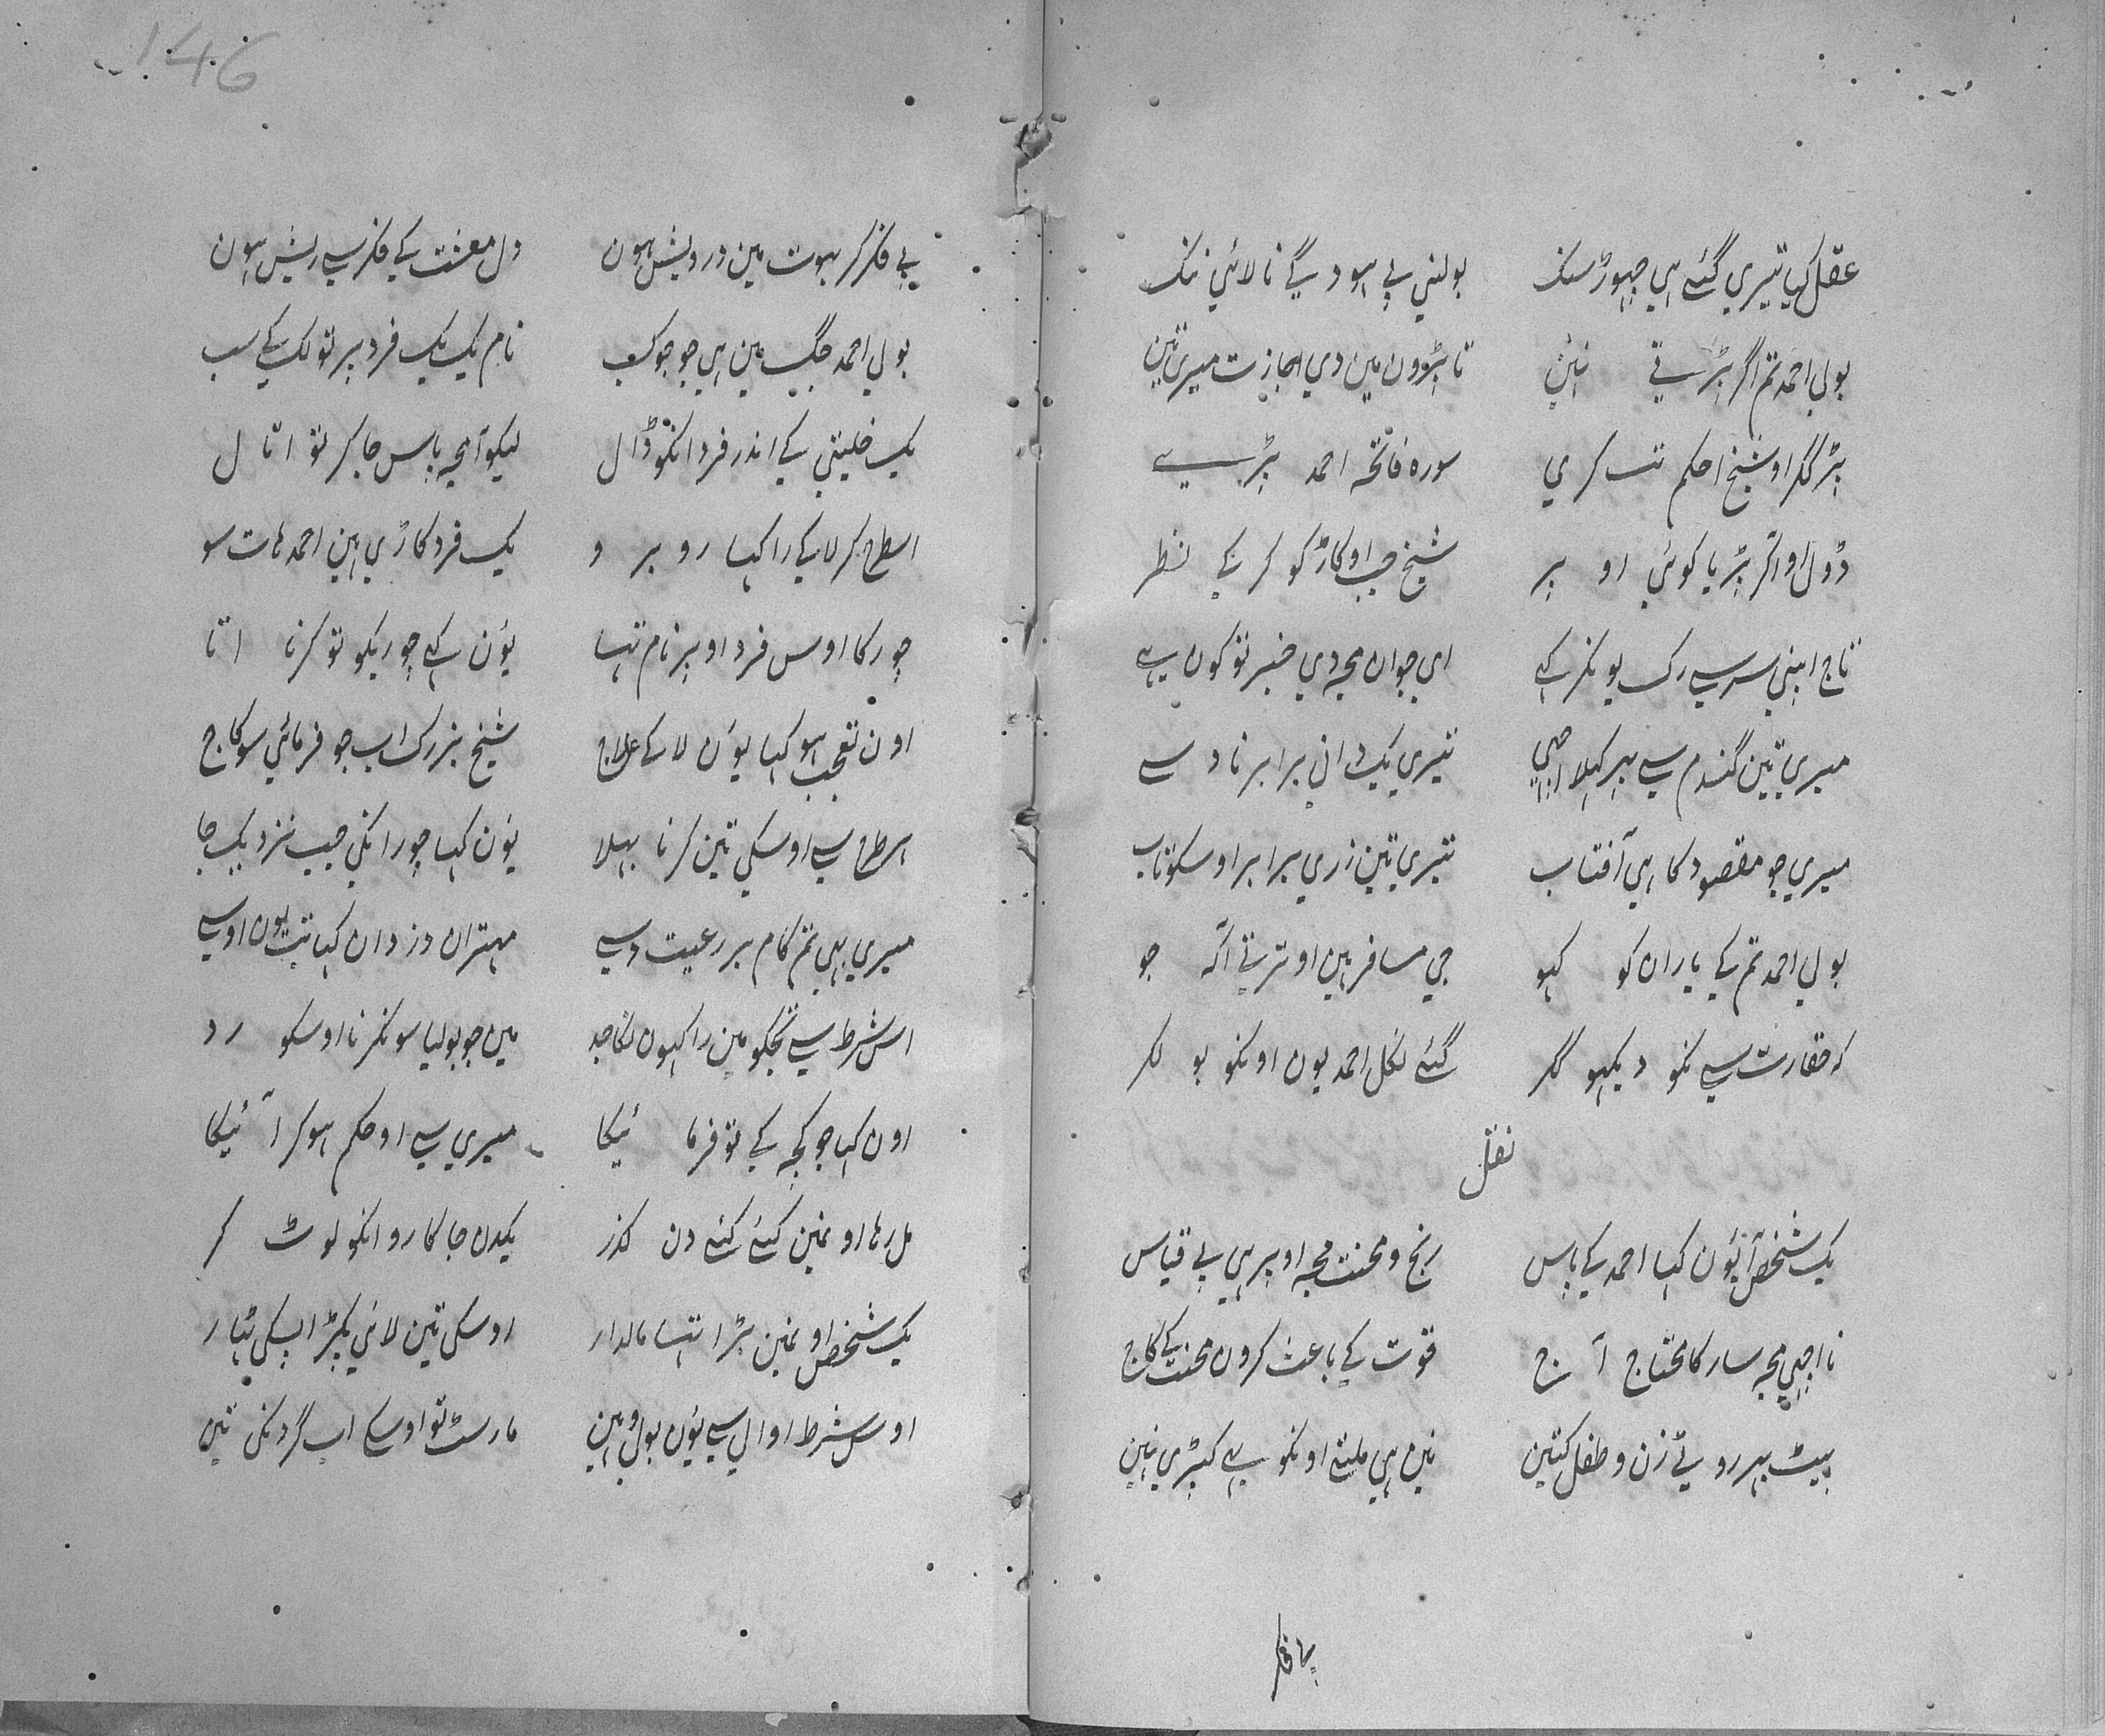 عقل کیا تیری گئے ہی چہوڑ سنک بولنی بی ہودیگے نا لائی نمک
بولی احمد تم اگر پڑتے نین تا پڑوون مین دی اجازت میری تین
پڑکگر او شیخ احکم تب کری سوره فاتحہ احمد پڑے
ڈول او اگر پڑیا کوئی او پر شیخ جب او کاڑکو کر کے نظر
تاج اپنی سر سے رک یو نکر کہے ای جوان مجہ دی خبر تو کون ہے
میری تین گندم سے بہر کہلا تیری یک دانی برابر نا دسے
میری جو مقصود کا ہی آفتاب تیری تین ذری برابر اوسکو تاب
بولی احمد تم کے یاران کو کہو جی مسافر ہین اوترتے اکہ جو
کہ حقارت سے نکو دیکہو گکر گئے نکل احمد یون اونکو بولکر
نقل
یک شخص آ یؤن کہا احمد کے پاس رنج و محنت مجہ اوپر ہی بے قیاس
نا اچہی مجہ سار کا محتاج آج قوت کے باعث کرون محنت کے کاج
پیٹ بہر روتے زن و طفل کتین نین ہی ملتے اونکو بے کپڑی نین
بے فکر
146
بے فکر کر بہوت مین درویش ہون دل معشت کے فکر سے ریش ہون
بولی احمد جگ مین ہی جو جو کسب نام یک یک فرد پر تو لک کے سب
یک خلیتی کے اندر فرد انکو ڈال لیکو آمجہ پاس جا کر تو اتال
اسطرح کر لاکے راکہیا روبرو یک فرد کاڑی ہین احمد ہات سو
چور کا اوس فرد اوپر نام تہا یؤن کہے چوریکو تو کرنا اتا
اون تعجب ہو کہیا یؤن لاعلاج شیخ بزرگ اب جو فرمائی سو کاج
اسطرح سے اوسکی تین کرنا بہلا یؤن کہا چورانکی جب نزدیک جا
میری ہی تم کام پر رعیت دسے مہتران دزدان کہا تب یون اوسے
اس شرط سے تجکو مین راکہون نکاجد مین جو بولیا سو نکرنا اوسکو رد
اون کہا جو کچہ کے تو فرمائیکا میری سے او حکم ہو کر آئیکا
مل رہا اونمین کئے کئے دن گذر یکدن جا کاروانکو لوٹ کر
یک شخص اونمین بڑا تہا مالدار اوسکی تین لائی پکڑ
اوس شرط اوال سے یؤن بول وہین مارسٹ تو اوسکے اب گردنکی تین